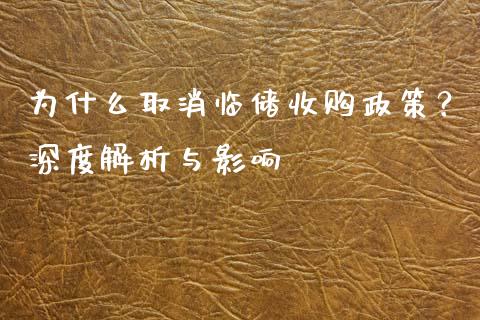 为什么取消临储收购政策？
深度解析与影响